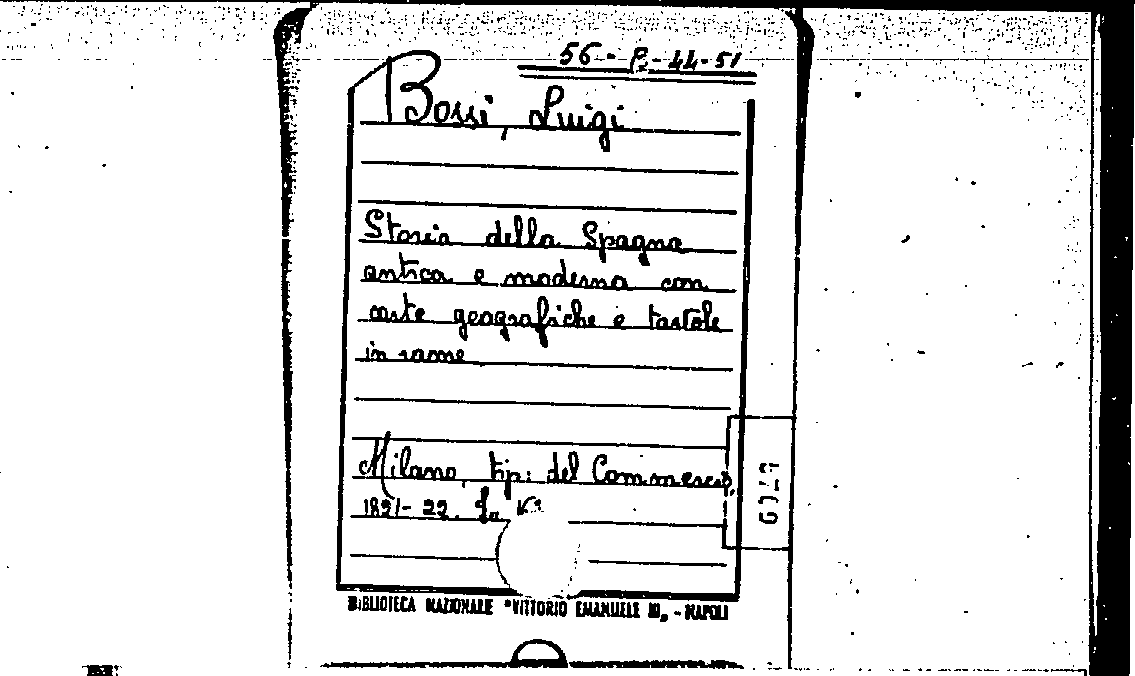 56-B-44-51
Bossi, Luigi
Storia della Spagna
antica e moderna con
carte geografiche e tavole
in rame
Milano, tip: del Commercio,
1821-22.
BIBLIOTECA NAZIONALE "VITTORIO EMANUELE III„ - NAPOLI